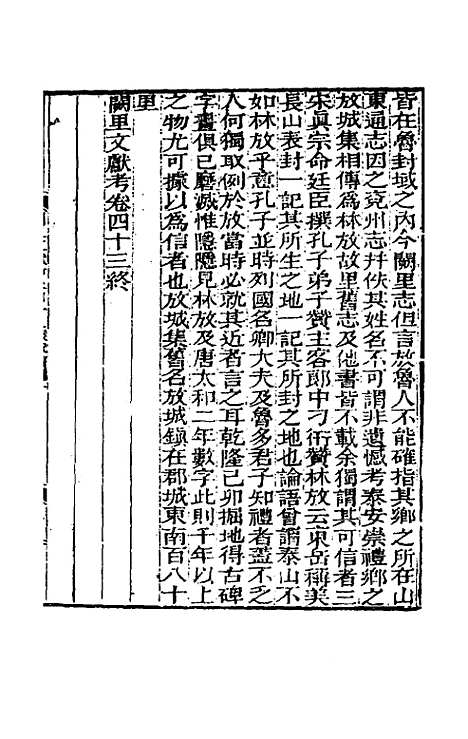 皆在魯封域之內今闕里志但言放魯人不能確指其鄉之所在山
東通志因之兗州志幷佚其姓名不可謂非遺憾考泰安崇禮鄉之
放城集相傳爲林放故里舊志及他書皆不載余獨謂其可信者三
宋眞宗命廷臣撰孔子弟子贊主客郞中刁衎贊林放云東岳稱美
長山表封一記其所生之地一記其所封之地也論語曾謂泰山不
如林放乎意孔子並時列國名卿大夫及魯多君子知禮者蓋不乏
人何獨取例於放當時必就其近者言之耳乾隆己卯掘地得古碑
字畫俱已磨滅惟隱隱見林放及唐太和二年數字此則千年以上
之物尤可據以爲信者也放城集舊名放城鎭在郡城東南百八十
里
闕里文獻考卷四十三終